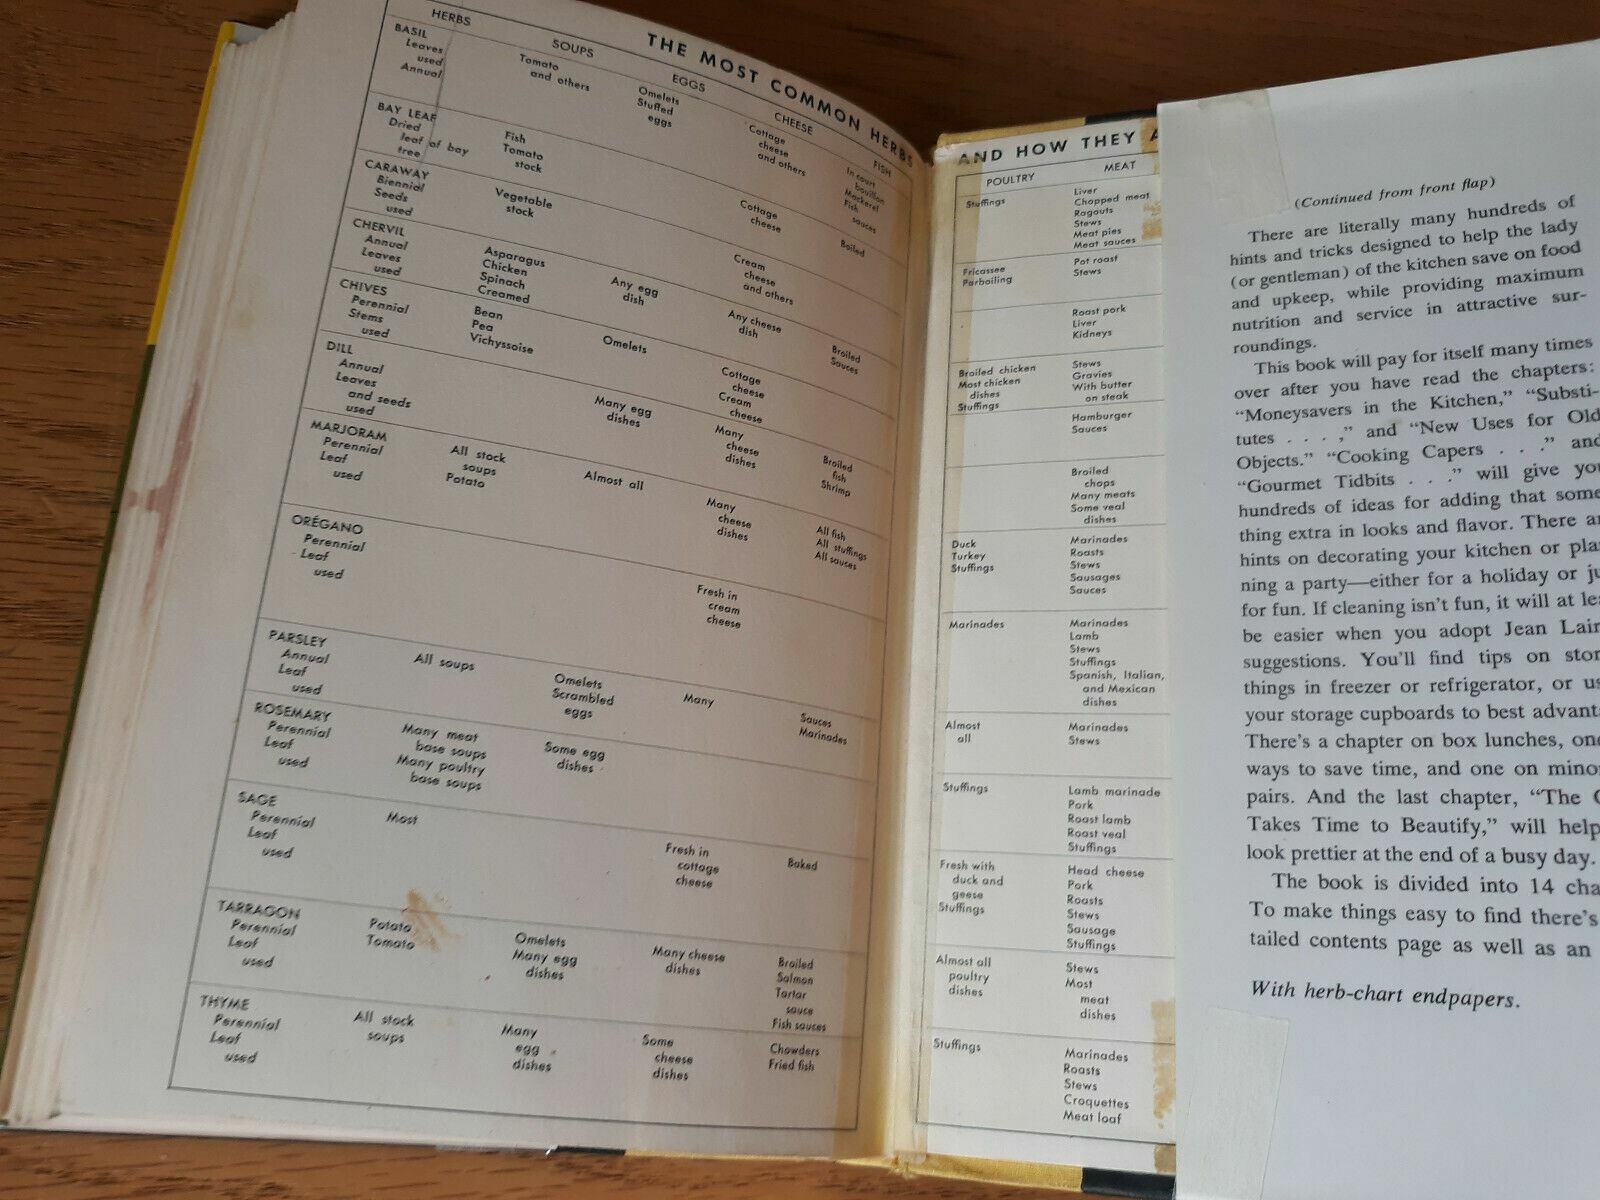 THE MOST COMMON HERBS
HERBS
SOUPS
EGGS
CHEESE
FISH
BASIL
Leaves
used
Annual
Tomato
and others
Omelets
Stuffed
eggs
Cottage
cheese
and others
In court
bouillon
Mackerel
Fish
sauces
BAY LEAF
Dried
leaf of bay
tree
Fish
Tomato
stock
Cottage
cheese
Boiled
CARAWAY
Biennial
Seeds
used
Vegetable
stock
Cream
cheese
and others
CHERVIL
Annual
Leaves
used
Asparagus
Chicken
Spinach
Creamed
Any egg
dish
Any cheese
dish
Broiled
Sauces
CHIVES
Perennial
Stems
used
Bean
Pea
Vichyssoise
Omelets
Cottage
cheese
Cream
cheese
DILL
Annual
Leaves
and seeds
used
Many egg
dishes
Many
cheese
dishes
Broiled
fish
Shrimp
MARJORAM
Perennial
Leaf
used
All stock
soups
Potato
Almost all
Many
cheese
dishes
All fish
All stuffings
All sauces
ORÉGANO
Perennial
Leaf
used
Fresh in
cream
cheese
PARSLEY
Annual
Leaf
used
All soups
Omelets
Scrambled
eggs
Many
Sauces
Marinades
ROSEMARY
Perennial
Leaf
used
Many meat
base soups
Many poultry
base soups
Some egg
dishes
SAGE
Perennial
Leaf
used
Most
Fresh in
cottage
cheese
Baked
TARRAGON
Perennial
Leaf
used
Potato
Tomato
Omelets
Many egg
dishes
Many cheese
dishes
Broiled
Salmon
Tartar
sauce
Fish sauces
THYME
Perennial
Leaf
used
All stock
soups
Many
egg
dishes
Some
cheese
dishes
Chowders
Fried fish
AND HOW THEY A
POULTRY
MEAT
Stuffings
Liver
Chopped meat
Ragouts
Stews
Meat pies
Meat sauces
Fricassee
Parboiling
Pot roast
Stews
Roast pork
Liver
Kidneys
Broiled chicken
Most chicken
dishes
Stuffings
Stews
Gravies
With butter
on steak
Hamburger
Sauces
Broiled
chops
Many meats
Some veal
dishes
Duck
Turkey
Stuffings
Marinades
Roasts
Stews
Sausages
Sauces
Marinades
Marinades
Lamb
Stews
Stuffings
Spanish, Italian,
and Mexican
dishes
Almost
all
Marinades
Stews
Stuffings
Lamb marinade
Pork
Roast lamb
Roast veal
Stuffings
Fresh with
duck and
geese
Stuffings
Head cheese
Pork
Roasts
Stews
Sausage
Stuffings
Almost all
poultry
dishes
Stews
Most
meat
dishes
Stuffings
Marinades
Roasts
Stews
Croquettes
Meat loaf
(Continued from front flap)
There are literally many hundreds of
hints and tricks designed to help the lady
(or gentleman) of the kitchen save on food
and upkeep, while providing maximum
nutrition and service in attractive sur-
roundings.
This book will pay for itself many times
over after you have read the chapters:
“Moneysavers in the Kitchen,” “Substi-
tutes . . . ,” and “New Uses for Old
Objects.” “Cooking Capers . . .” and
“Gourmet Tidbits . . .” will give you
hundreds of ideas for adding that some-
thing extra in looks and flavor. There ar
hints on decorating your kitchen or plan
ning a party—either for a holiday or ju
for fun. If cleaning isn’t fun, it will at lea
be easier when you adopt Jean Lair
suggestions. You’ll find tips on stor
things in freezer or refrigerator, or us
your storage cupboards to best advanta
There’s a chapter on box lunches, one
ways to save time, and one on minor
pairs. And the last chapter, “The C
Takes Time to Beautify,” will help
look prettier at the end of a busy day.
The book is divided into 14 cha
To make things easy to find there’s
tailed contents page as well as an
With herb-chart endpapers.